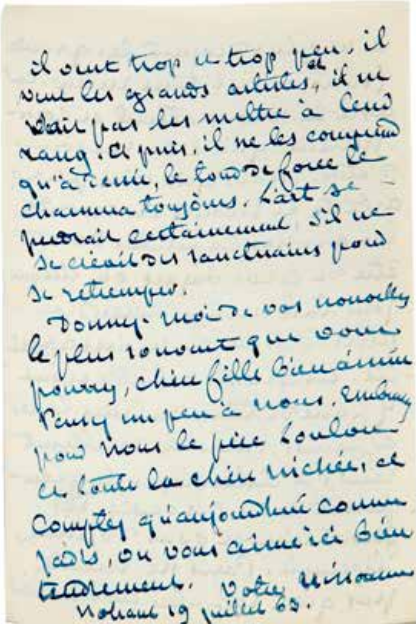 il veut trop et trop peu, il
veut les grands artistes, et il ne
sait pas les mettre à leur
rang. Et puis, il ne les comprend
qu'à demi, le tour de force le
charmera toujours. L'art se
perdrait certainement s'il ne
se créait des sanctuaires pour
se retremper.
Donnez-moi de vos nouvelles
le plus souvent que vous
pourrez, chère fille bien aimée
Pensez un peu à nous. Embrassez
pour nous le père Loulou
et toute la chère nichée, et
comptez qu'aujourd'hui comme
jadis, on vous aime ici bien
tendrement. Votre
Nohant 19 juillet 63.